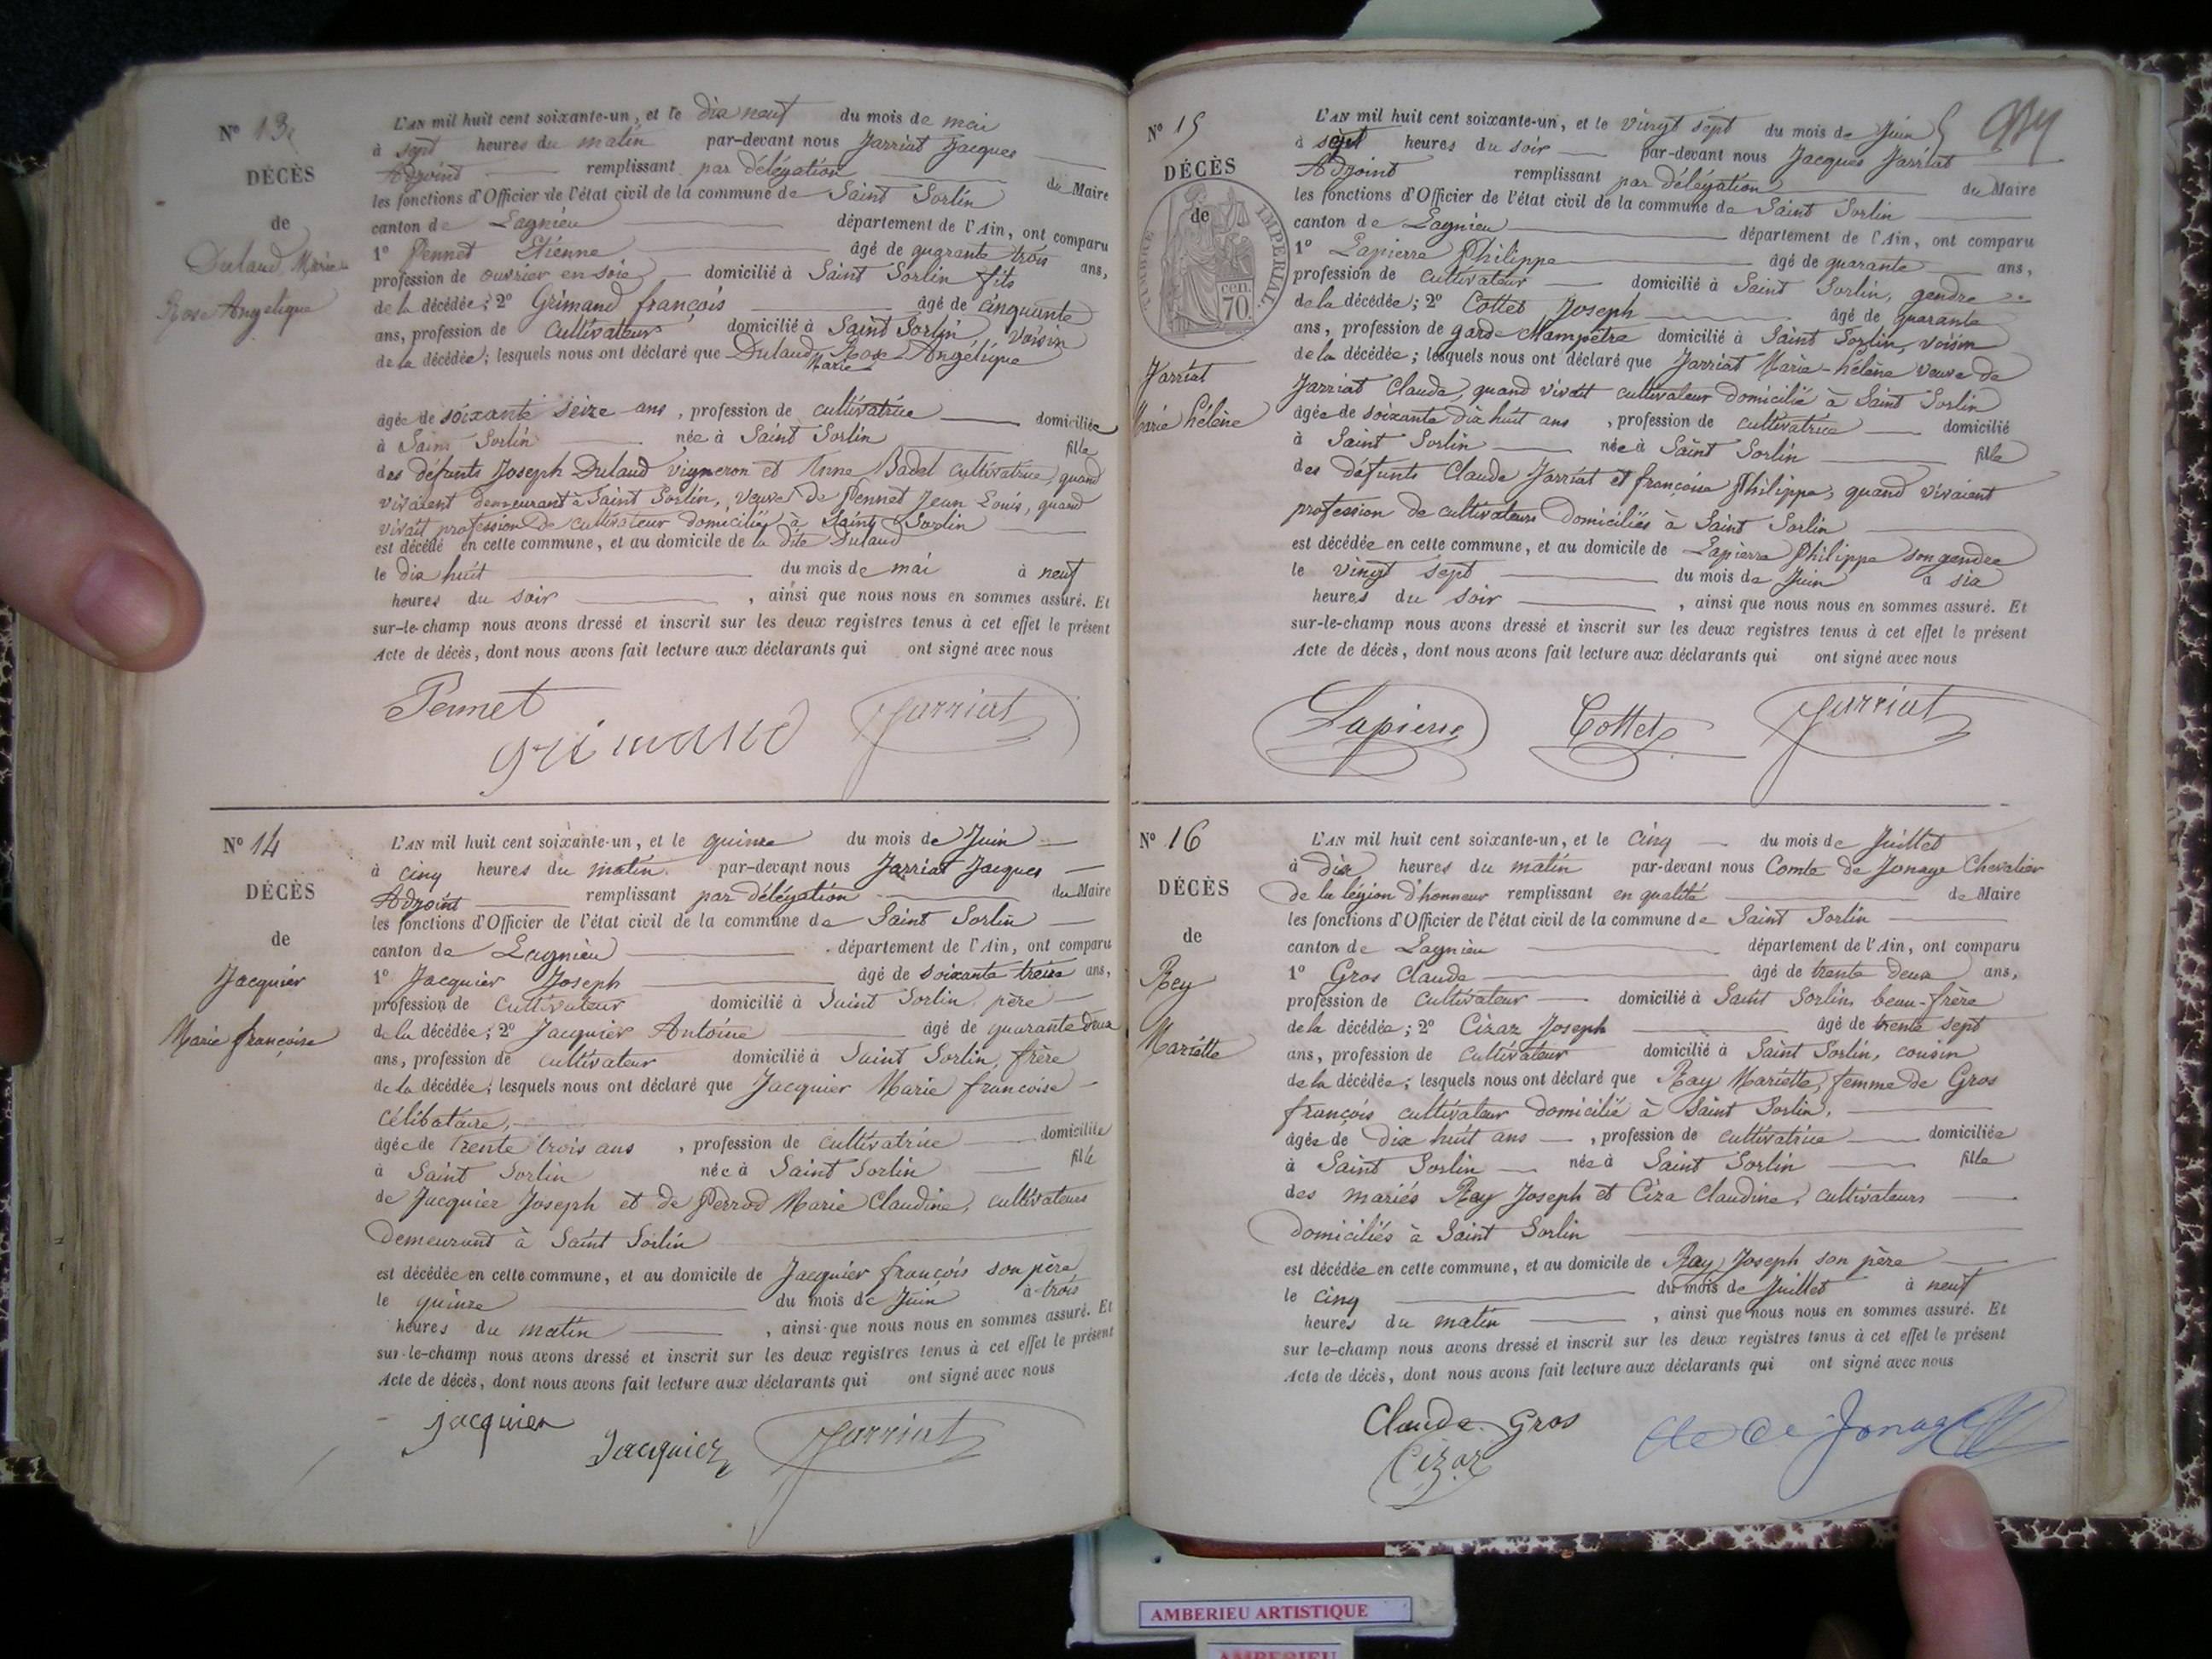 N° 13
DÉCÈS
de
Dulaud Marie
Rose Angélique
L'AN mil huit cent soixante-un, et le dix neuf du mois de mai
à sept heures du matin par-devant nous Jarriat Jacques
Adjoint remplissant par délégation du Maire
les fonctions d'Officier de l'état civil de la commune de Saint Sorlin
canton de Lagnieu département de l'Ain, ont comparu
1° Pennet Etienne âgé de quarante trois ans,
profession de ouvrier en soie domicilié à Saint Sorlin fils
de la décédée; 2° Grimand françois âgé de cinquante
ans, profession de Cultivateur domicilié à Saint Sorlin voisin
de la décédée; lesquels nous ont déclaré que Dulaud Rose Angélique
Marie
âgée de soixante seize ans, profession de cultivatrice domiciliée
à Saint Sorlin née à Saint Sorlin fille
des défunts Joseph Dulaud vigneron et Anne Badel Cultivatrice, quand
vivaient demeurant à Saint Sorlin, veuve de Pennet Jean Louis, quand
vivait profession de cultivateur domicilié à Saint Sorlin
est décédé en cette commune, et au domicile de la dite Dulaud
le dix huit du mois de mai à neuf
heures du soir, ainsi que nous nous en sommes assuré. Et
sur-le-champ nous avons dressé et inscrit sur les deux registres tenus à cet effet le présent
Acte de décès, dont nous avons fait lecture aux déclarants qui ont signé avec nous
Pennet
grimand Jarriat
N° 14
DÉCÈS
de
Jacquier
Marie françoise
L'AN mil huit cent soixante-un, et le quinze du mois de Juin
à cinq heures du matin par-devant nous Jarriat Jacques
Adjoint remplissant par délégation du Maire
les fonctions d'Officier de l'état civil de la commune de Saint Sorlin
canton de Lagnieu département de l'Ain, ont comparu
1° Jacquier Joseph âgé de soixante treize ans,
profession de Cultivateur domicilié à Saint Sorlin, père
de la décédée; 2° Jacquier Antoine âgé de quarante deux
ans, profession de cultivateur domicilié à Saint Sorlin, frère
de la décédée; lesquels nous ont déclaré que Jacquier Marie françoise
célibataire,
âgée de trente trois ans, profession de cultivatrice domiciliée
à Saint Sorlin née à Saint Sorlin fille
de Jacquier Joseph et de Perrod Marie Claudine, cultivateurs
demeurant à Saint Sorlin
est décédée en cette commune, et au domicile de Jacquier françois son père
le quinze du mois de Juin à trois
heures du matin, ainsi que nous nous en sommes assuré. Et
sur-le-champ nous avons dressé et inscrit sur les deux registres tenus à cet effet le présent
Acte de décès, dont nous avons fait lecture aux déclarants qui ont signé avec nous
jacquier
Jacquier Jarriat
N° 15
DÉCÈS
de
TIMBRE IMPÉRIAL
cen. 70.
Jarriat
Marie hélène
L'AN mil huit cent soixante-un, et le vingt sept du mois de Juin
à sept heures du soir par-devant nous Jacques Jarriat
Adjoint remplissant par délégation du Maire
les fonctions d'Officier de l'état civil de la commune de Saint Sorlin
canton de Lagnieu département de l'Ain, ont comparu
1° Lapierre Philippe âgé de quarante ans,
profession de cultivateur domicilié à Saint Sorlin, gendre
de la décédée; 2° Cottet Joseph âgé de quarante
ans, profession de garde champêtre domicilié à Saint Sorlin, voisin
de la décédée; lesquels nous ont déclaré que Jarriat Marie-hélène veuve de
Jarriat Claude, quand vivait cultivateur domicilié à Saint Sorlin
âgée de soixante dix huit ans, profession de cultivatrice domicilié
à Saint Sorlin née à Saint Sorlin fille
des défunts Claude Jarriat et françoise Philippe, quand vivaient
profession de cultivateurs domiciliés à Saint Sorlin
est décédée en cette commune, et au domicile de Lapierre Philippe son gendre
le vingt sept du mois de Juin à six
heures du soir, ainsi que nous nous en sommes assuré. Et
sur-le-champ nous avons dressé et inscrit sur les deux registres tenus à cet effet le présent
Acte de décès, dont nous avons fait lecture aux déclarants qui ont signé avec nous
Lapierre Cottet Jarriat
N° 16
DÉCÈS
de
Rey
Mariette
L'AN mil huit cent soixante-un, et le cinq du mois de Juillet
à dix heures du matin par-devant nous Comte de Jonage Chevalier
de la légion d'honneur remplissant en qualité de Maire
les fonctions d'Officier de l'état civil de la commune de Saint Sorlin
canton de Lagnieu département de l'Ain, ont comparu
1° Gros Claude âgé de trente deux ans,
profession de Cultivateur domicilié à Saint Sorlin, beau-frère
de la décédée; 2° Cizaz Joseph âgé de trente sept
ans, profession de cultivateur domicilié à Saint Sorlin, cousin
de la décédée; lesquels nous ont déclaré que Ray Mariette, femme de Gros
françois cultivateur domicilié à Saint Sorlin,
âgée de dix huit ans, profession de cultivatrice domiciliée
à Saint Sorlin née à Saint Sorlin fille
des mariés Rey Joseph et Ciza Claudine, cultivateurs
domiciliés à Saint Sorlin
est décédée en cette commune, et au domicile de Ray Joseph son père
le cinq du mois de Juillet à neuf
heures du matin, ainsi que nous nous en sommes assuré. Et
sur le-champ nous avons dressé et inscrit sur les deux registres tenus à cet effet le présent
Acte de décès, dont nous avons fait lecture aux déclarants qui ont signé avec nous
Claude Gros
Cizaz de Jonage
AMBERIEU ARTISTIQUE
AMBERIEU